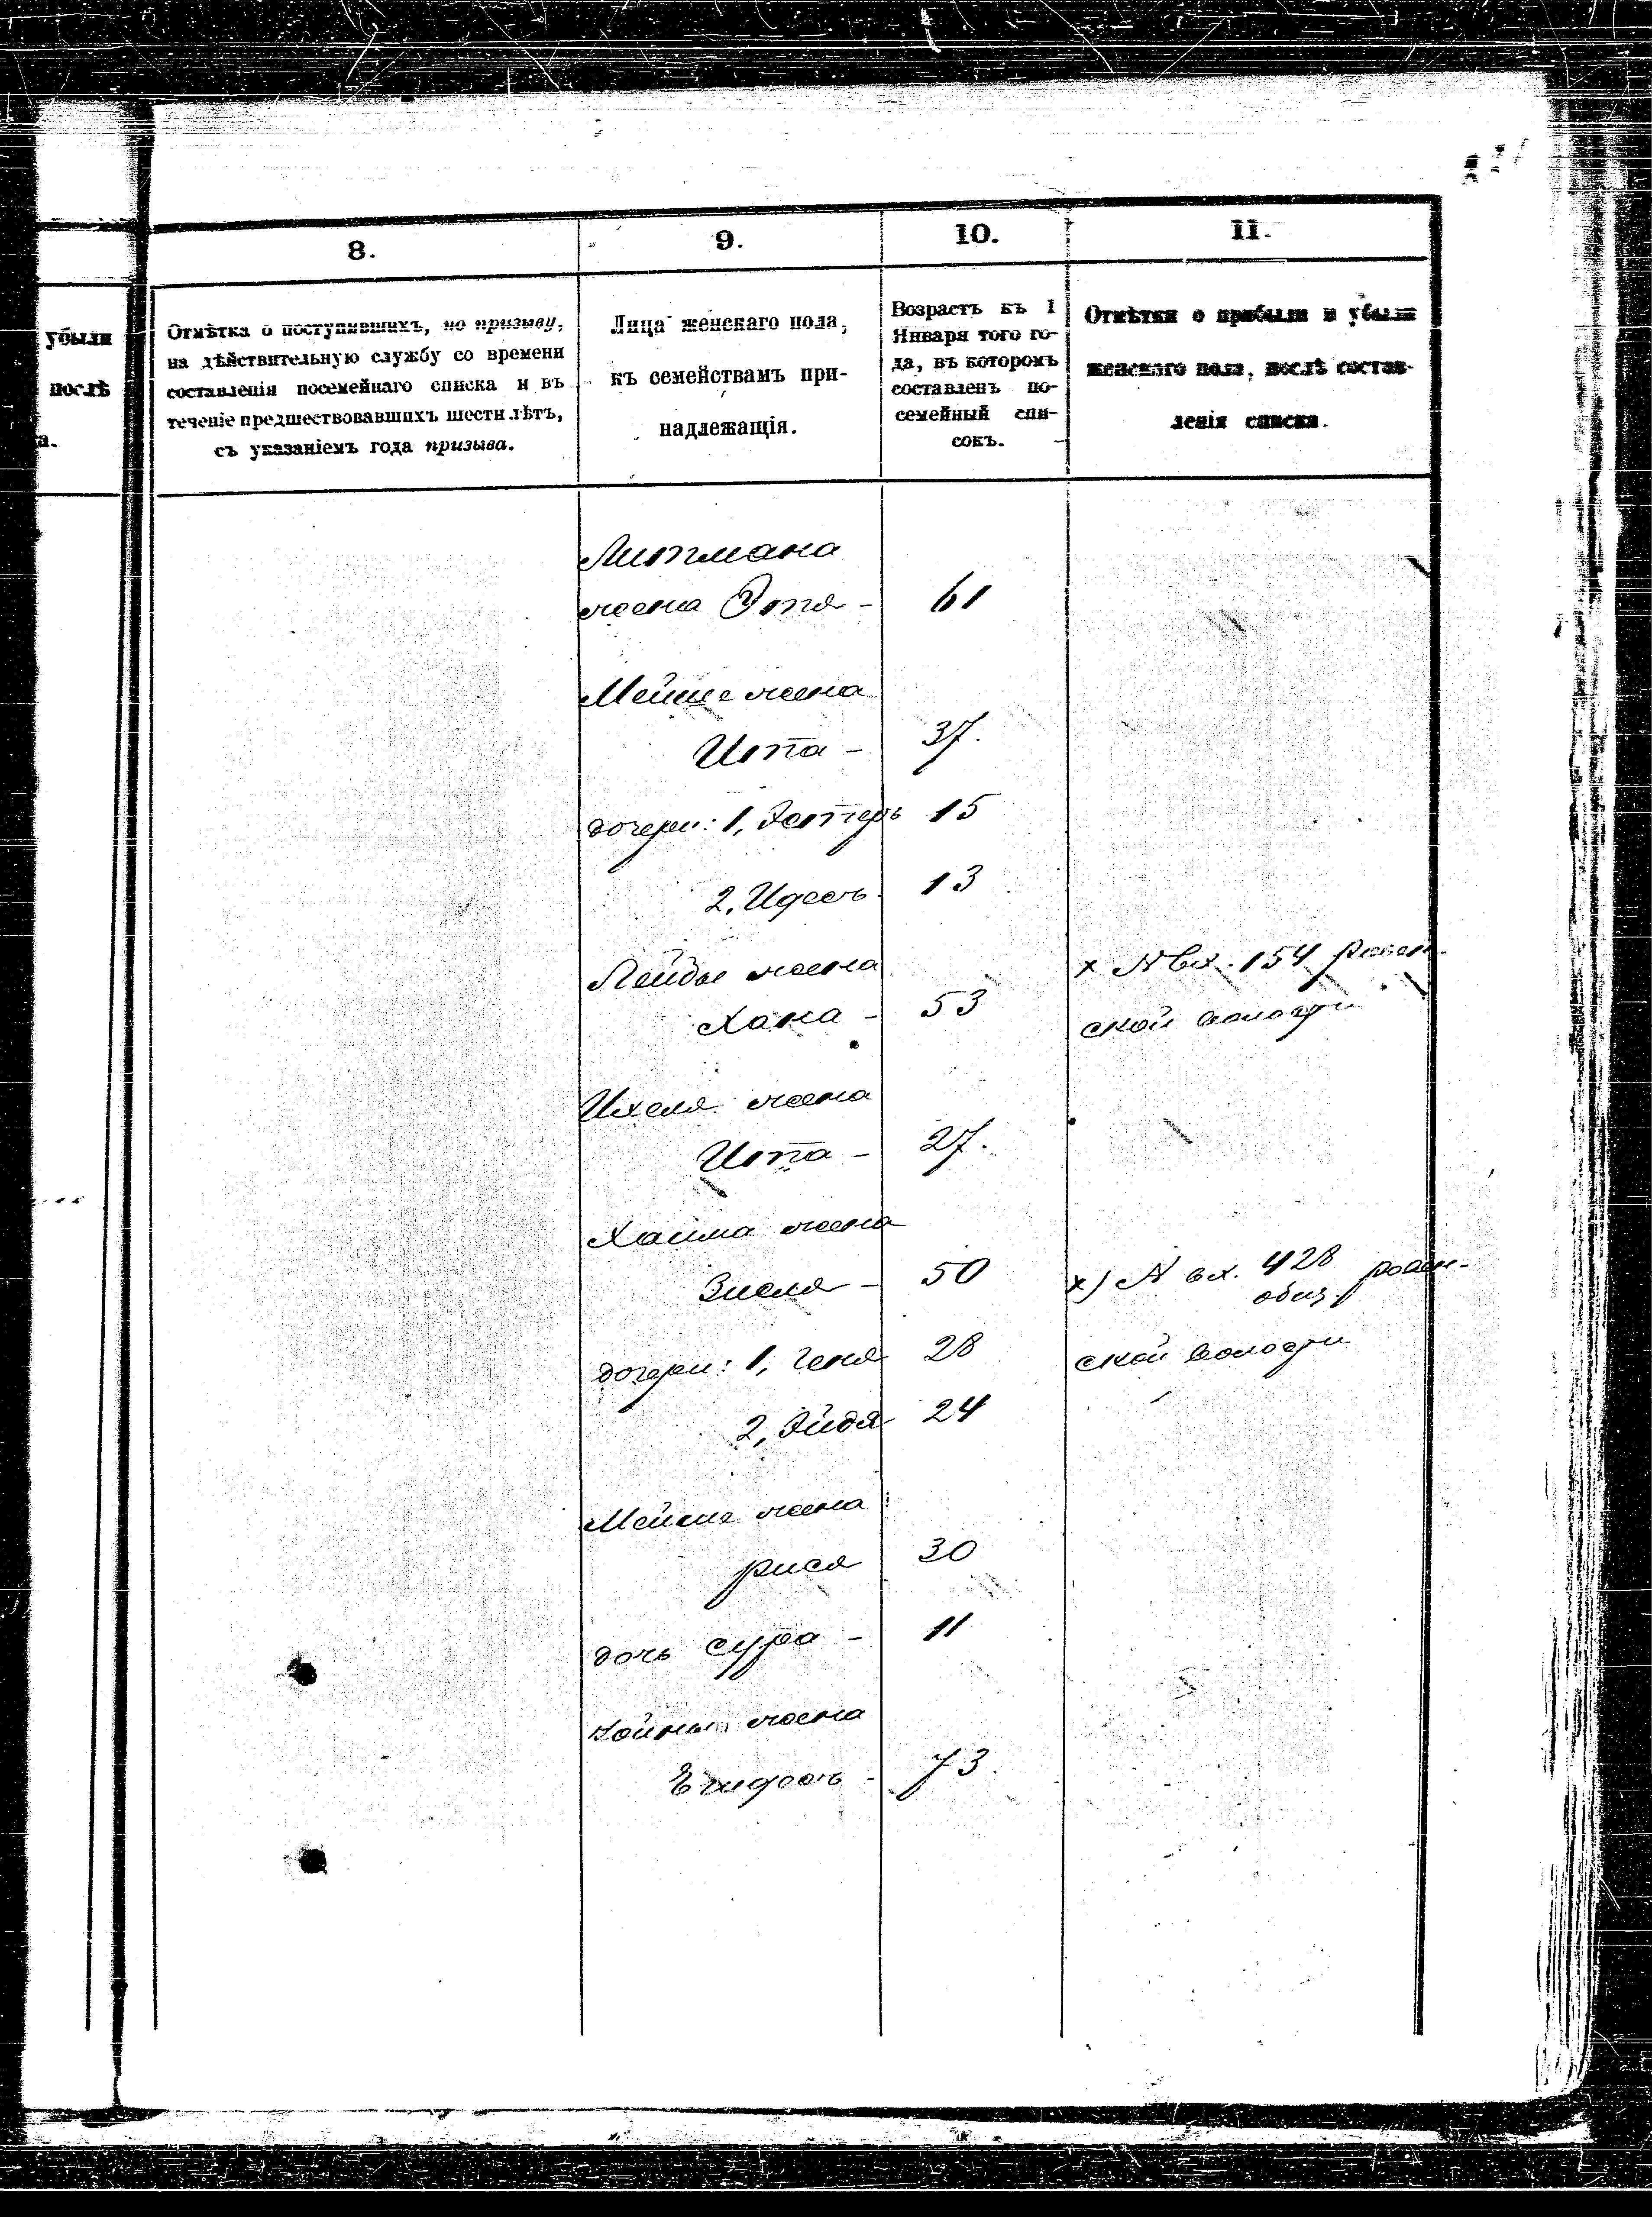 8.
9.
10.
11.
убыли
послѣ
а.
Отмѣтка о поступившихъ, по призыву,
на дѣйствительную службу со времени
составленія посемейнаго списка и въ
теченіе предшествовавшихъ шести лѣтъ,
съ указаніемъ года призыва.
Лица женскаго пола,
къ семействамъ при-
надлежащія.
Возрастъ къ 1
Января того го-
да, въ которомъ
составленъ по-
семейный спи-
сокъ.
Отмѣтки о прибыли и убыли
женскаго пола, послѣ состав-
ленія списка.
Литмана
жена Этя - 61
Мейше жена
Ита - 37.
дочери: 1, Эстеръ 15
2, Идесъ 13
Лейбы жена
х N вх. 154
Хана - 53
ской волости
Ихеля жена
Ита - 27.
Хаима жена
Зисля - 50 х) N вх. 428
дочери: 1, Геня 28 ской волости
2, Эйдя 24
Мейше жена
Рися 30
дочь Сура - 11
жена
73.